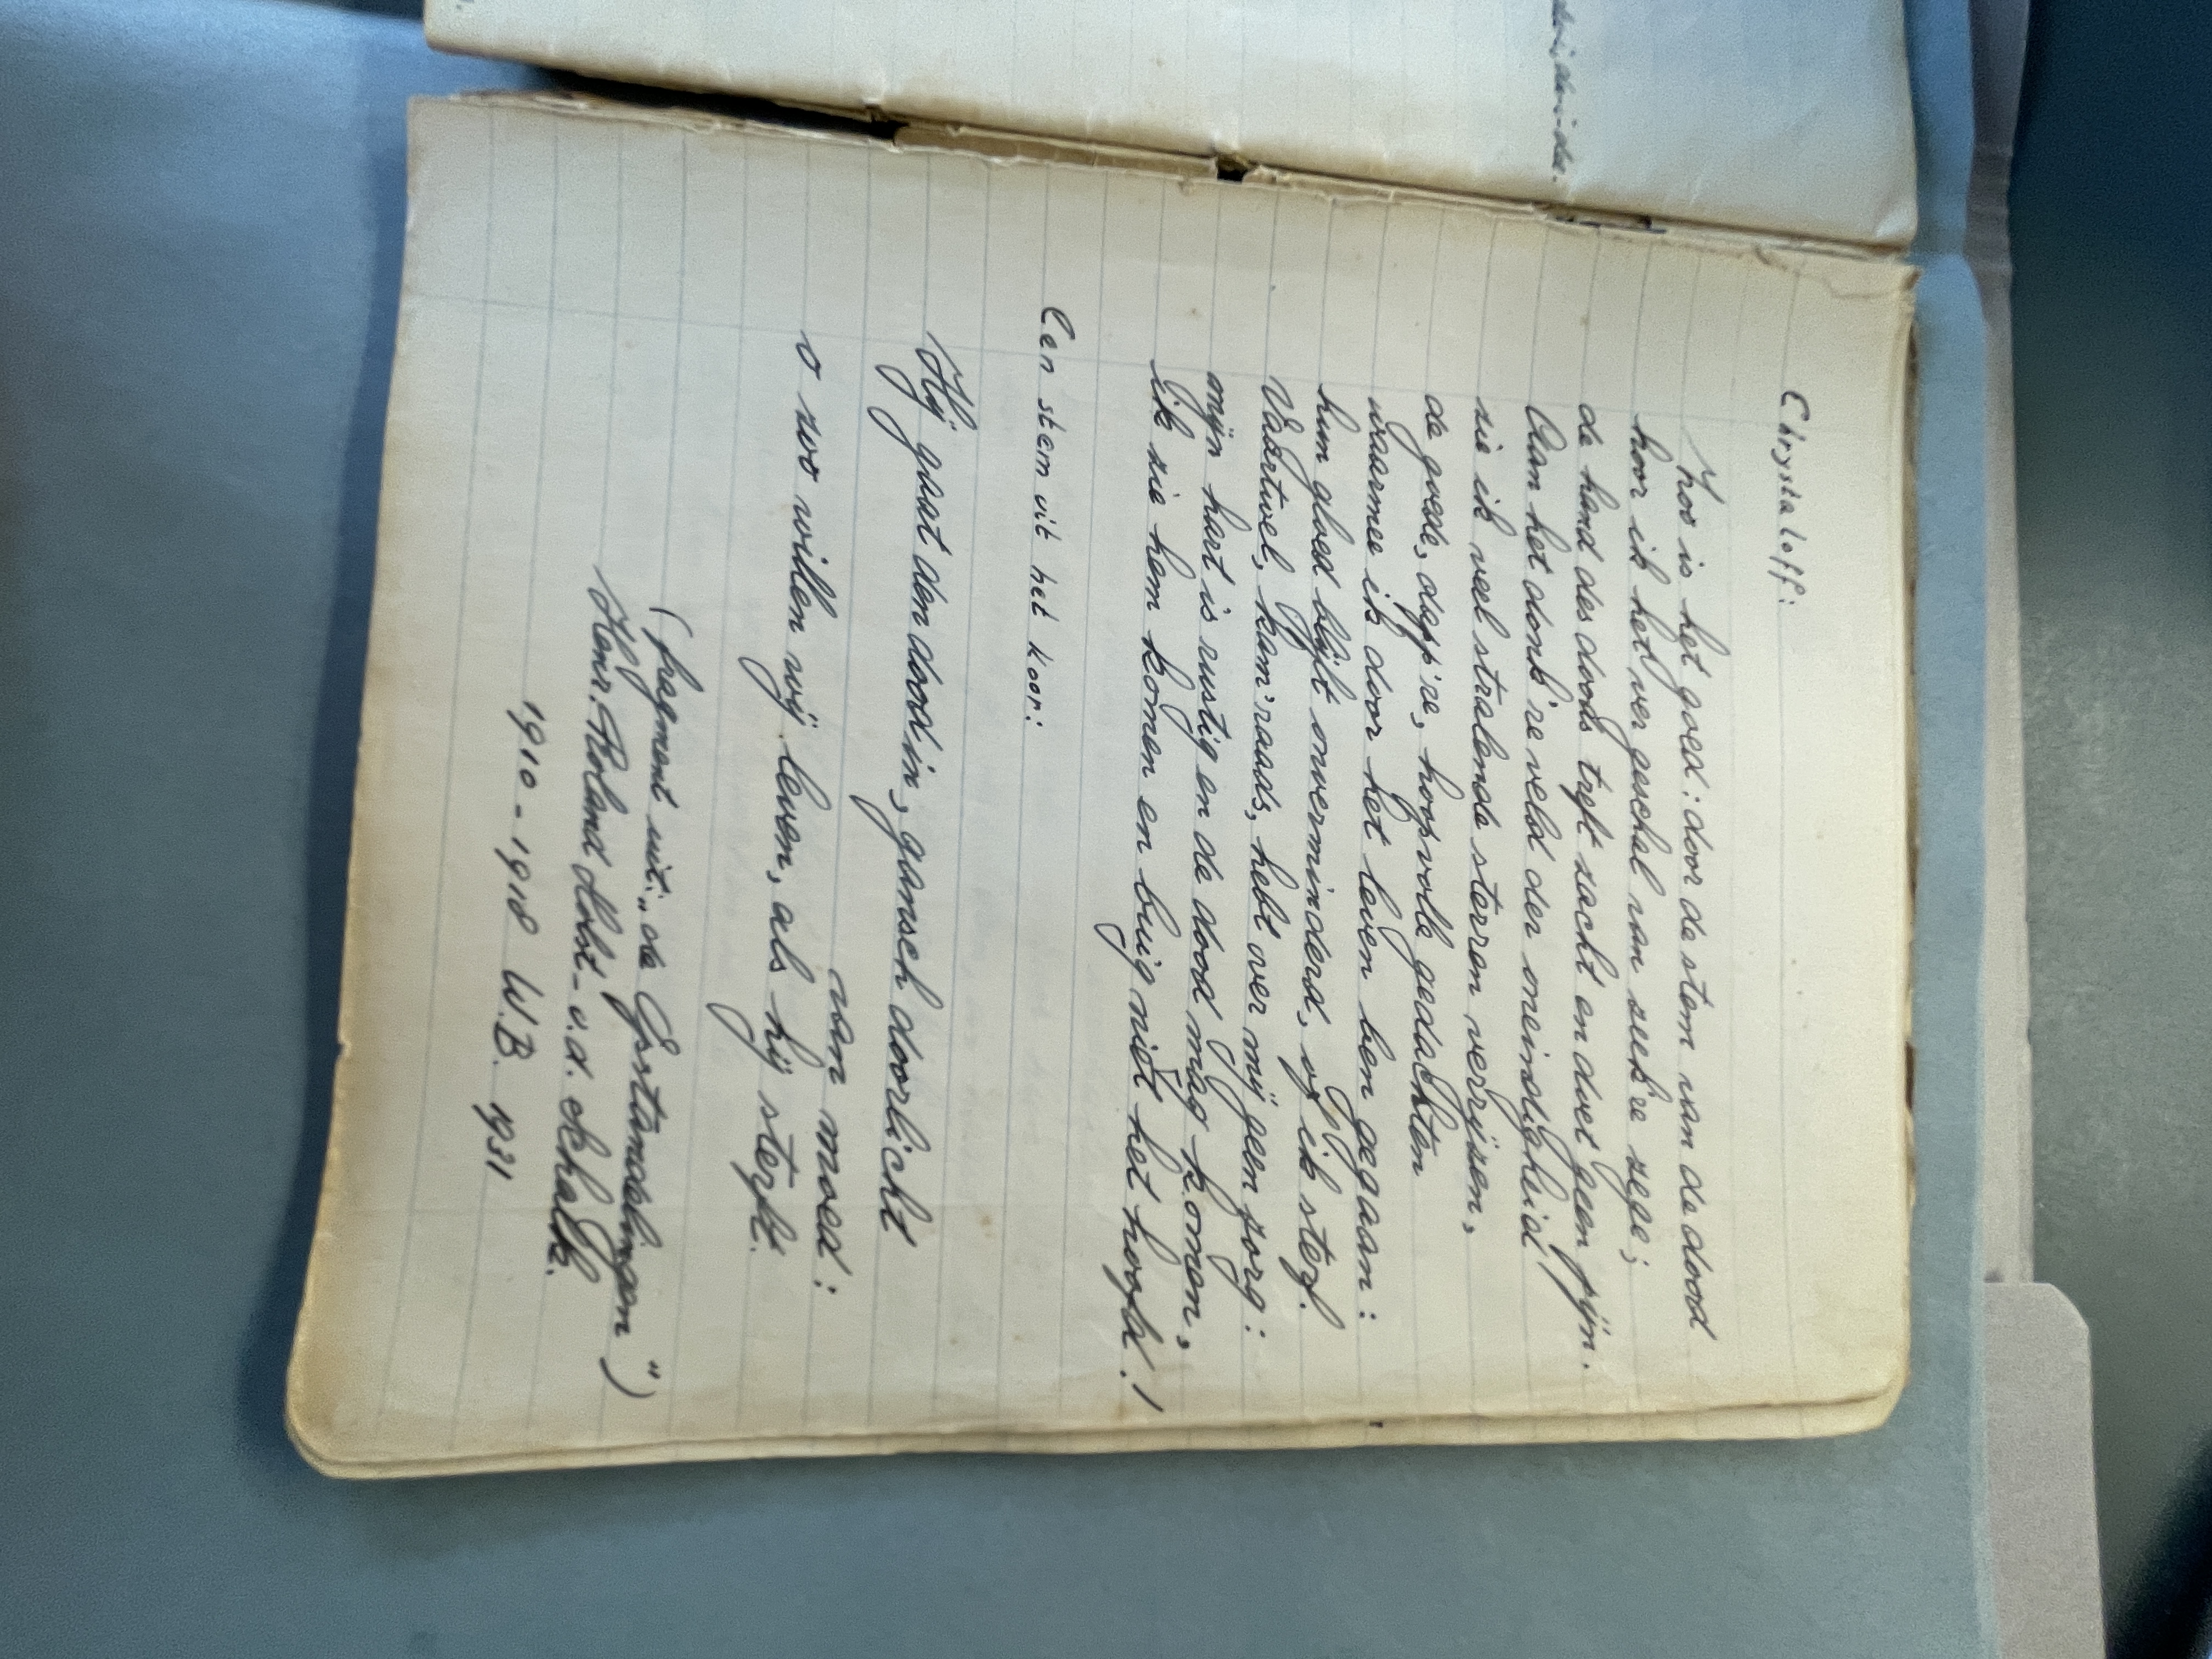 Chrystaloff:
Zoo is het goed: door de stem van de dood
hoor ik het ver geschal van zeek're zege;
de hand des doods tript zacht en doet geen pijn.
Aan het donk're veld der oneindigheid
zie ik veel stralende sterren verrijzen,
de goede, dapp're, hoopvolle gedachten
waarmee ik door het leven ben gegaan:
hun gloed blijft onverminderd, of ik sterf.
Vaartwel, kam'raads, hebt over mij geen zorg:
mijn hart is rustig en de dood mag komen,
ik zie hem komen en buig niet het hoofd!
Een stem uit het koor:
Hij gaat den dood in, gansch doorlicht
van moed:
o zoo willen wij leven, als hij sterft.
(fragment uit: „de Opstandelingen")
Henr. Roland Holst-v.d. Schalk.
1910-1918 W.B. 1931